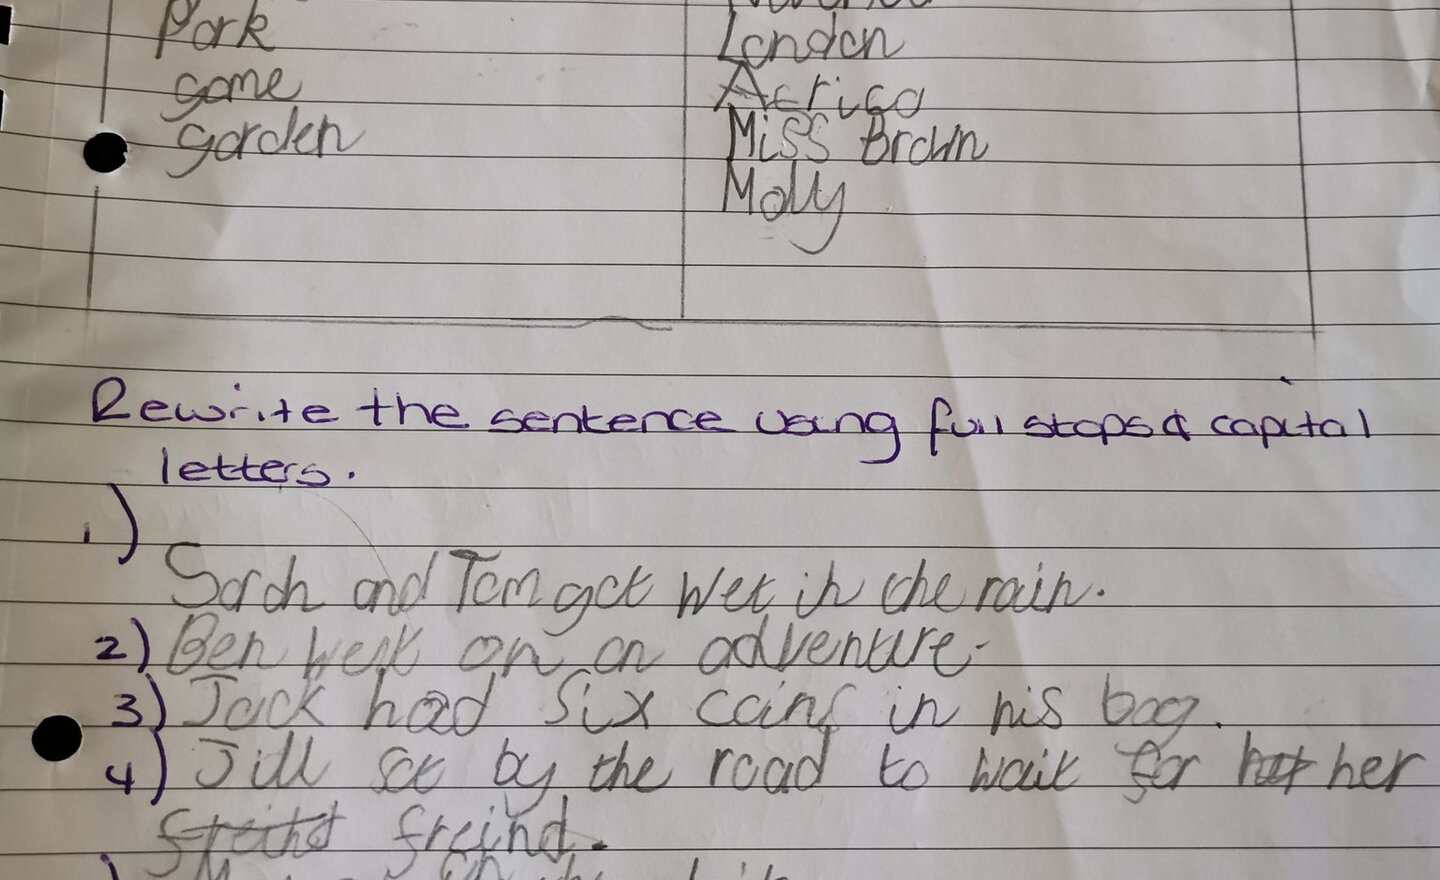 Park London
game Africa
garden Miss Brown
Molly
Rewrite the sentence using full stops & capital
letters.
1)
Sarah and Tom got wet in the rain.
2) Ben went on an adventure.
3) Jack had six coins in his bag.
4) Jill sat by the road to wait for her
freind.